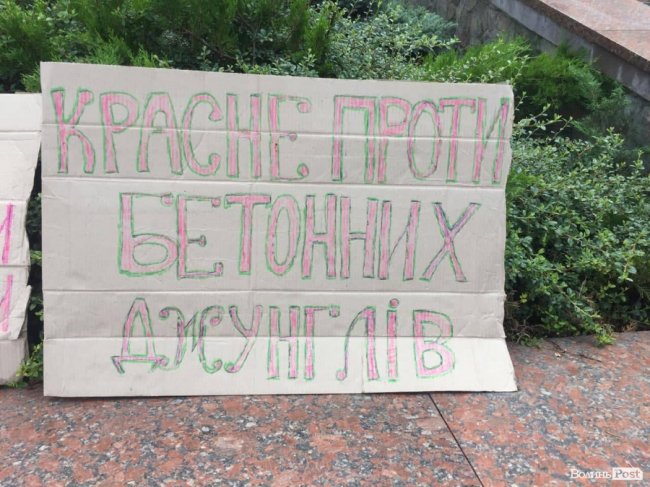 КРАСНЕ ПРОТИ
БЕТОННИХ
ДЖУНГЛІВ
ВолиньPost